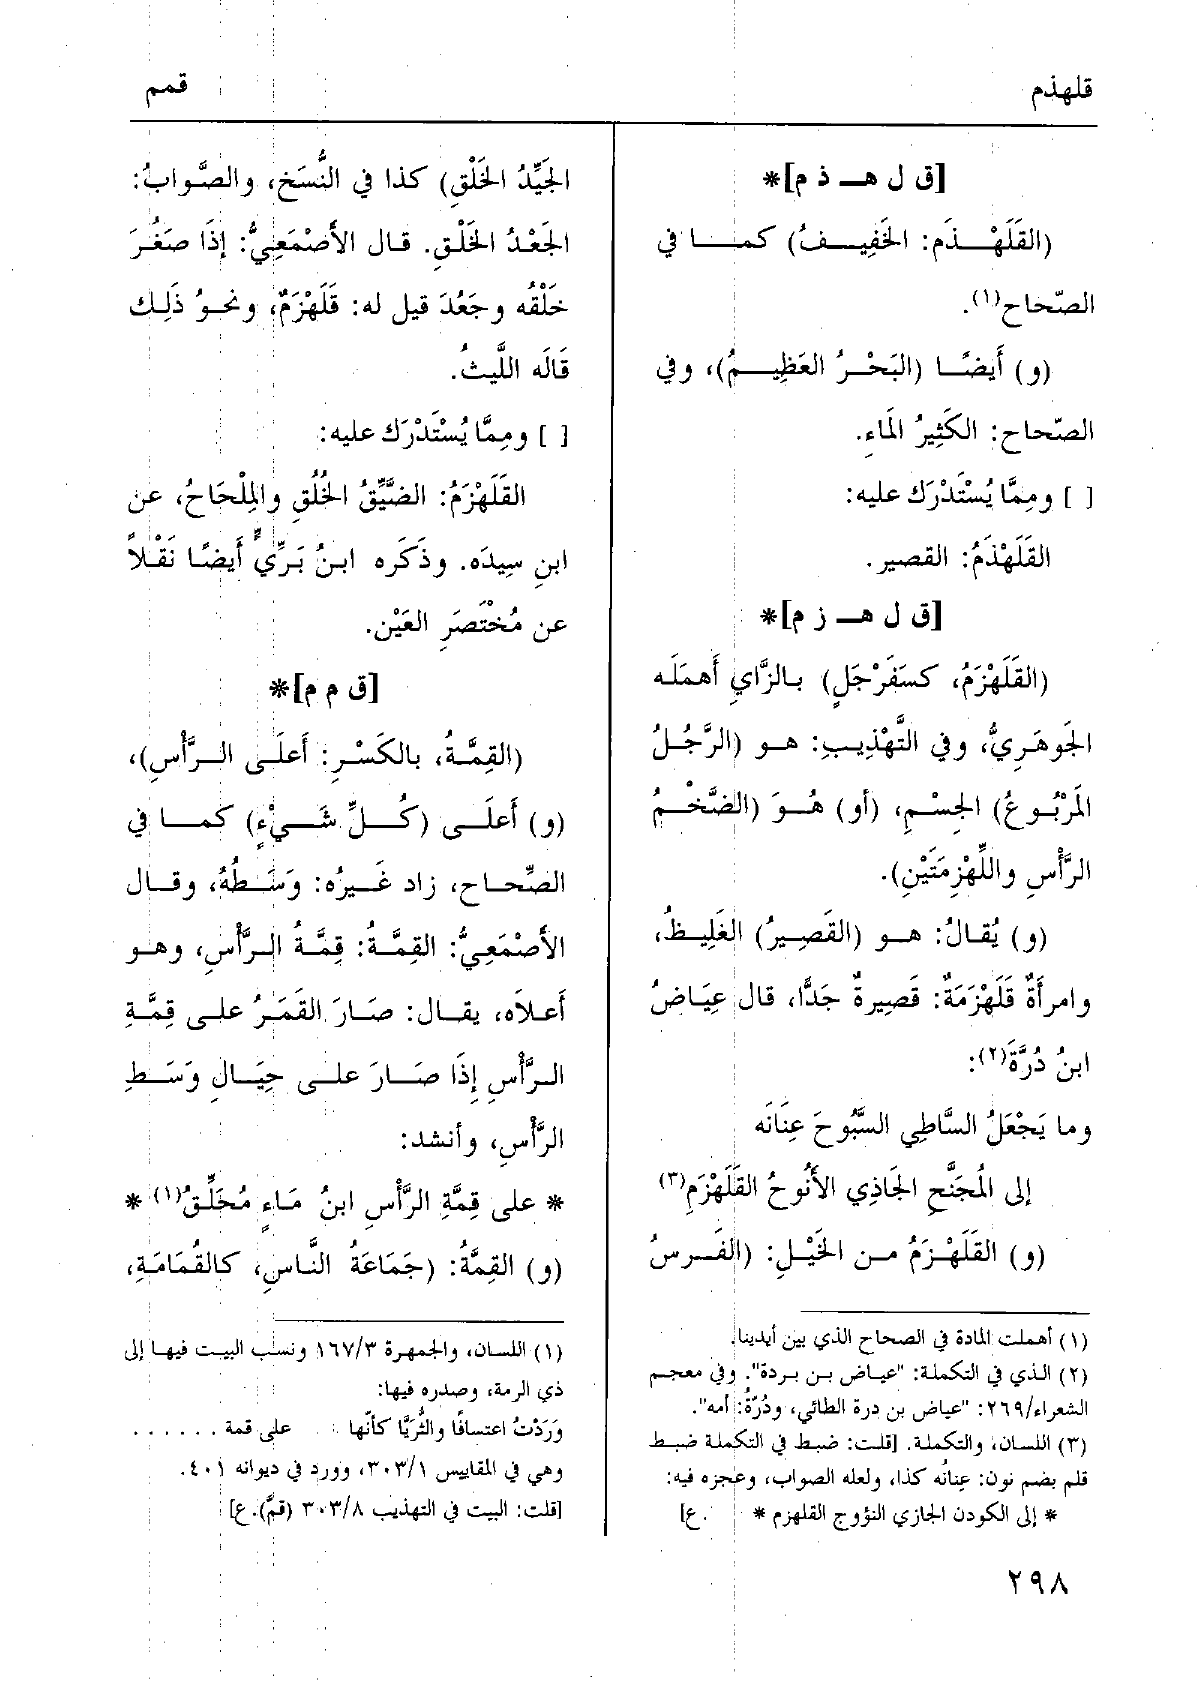 قلهذم
قمم
[ق ل هـ ذ م]*
(القَلَهْـذَم: الخَفِيـفُ) كمـا في
الصّحاح(١).
(و) أَيضًـا (البَحْـرُ العَظِيـمُ)، وفي
الصّحاح: الكَثِيرُ المَاءِ.
[ ] ومِمَّا يُسْتَدْرَك عليه:
القَلَهْذَمُ: القصير.
[ق ل هـ ز م]*
(القَلَهْزَمُ، كسَفَرْجَلٍ) بالزَّايِ أَهملَه
الجَوهَرِيُّ، وفي التَّهْذِيبِ: هو (الرَّجُلُ
المَرْبُوعُ) الجِسْمِ، (أو) هُوَ (الضَّخْمُ
الرَّأْسِ واللِّهْزِمَتَيْنِ).
(و) يُقالُ: هـو (القَصِيرُ) الغَلِيظُ،
وامرأَةٌ قَلَهْزَمَةٌ: قَصِيرةٌ جَدًّا، قال عِيَاضُ
ابنُ دُرَّةَ(٢):
وما يَجْعَلُ السَّاطِي السَّبُوحَ عِنَانَه
إلى المُجَنَّحِ الجَاذِي الأَنُوحُ القَلَهْزَمِ(٣)
(و) القَلَهْزَمُ مـن الخَيْلِ: (الفَرسُ
(١) أهملت المادة في الصحاح الذي بين أيدينا.
(٢) الذي في التكملة: "عياض بن بردة". وفي معجم
الشعراء/٢٦٩: "عياض بن درة الطائي، ودُرَّةُ: أمه".
(٣) اللسان، والتكملة. [قلت: ضبط في التكملة ضبط
قلم بضم نون: عِنانُه كذا، ولعله الصواب، وعجزه فيه:
* إلى الكودن الجازي النؤوج القلهزم * .ع]
الجَيِّدُ الخَلْقِ) كذا في النُّسَخِ، والصَّوابُ:
الجَعْدُ الخَلْقِ. قال الأَصْمَعِيُّ: إذَا صَغُرَ
خَلْقُه وجَعُدَ قيل له: قَلَهْزَمٌ، ونحوُ ذَلِك
قَالَه اللَّيثُ.
[ ] ومِمَّا يُسْتَدْرَك عليه:
القَلَهْزَمُ: الضَّيِّقُ الخُلُقِ والمِلْحَاحُ، عن
ابنِ سِيدَه. وذَكَره ابنُ بَرِّيٍّ أَيضًا نَقْلاً
عن مُخْتَصَرِ العَيْن.
[ق م م]*
(القِمَّةُ، بالكَسْرِ: أَعلَى الرَّأْسِ)،
(و) أَعلَـى (كُـلِّ شَـيْءٍ) كمـا في
الصِّحاح، زاد غَيرُه: وَسَطُهُ، وقال
الأَصْمَعِيُّ: القِمَّةُ: قِمَّةُ الرَّأْسِ، وهو
أَعلاَه، يقال: صَارَ القَمَرُ على قِمَّةِ
الرَّأْسِ إِذَا صَـارَ علـى حِيَـالِ وَسَـطِ
الرَّأْسِ، وأنشد:
* على قِمَّةِ الرَّأْسِ ابنُ مَاءٍ مُحَلِّقُ(١) *
(و) القِمَّةُ: (جَمَاعَةُ النَّاسِ، كالقُمَامَةِ،
(١) اللسان، والجمهرة ١٦٧/٣ ونسب البيت فيها إلى
ذي الرمة، وصدره فيها:
وَرَدْتُ اعتسافًا والثُّرَيَّا كأنّها على قمة ......
وهي في المقاييس ٣٠٣/١، وورد في ديوانه ٤٠١.
[قلت: البيت في التهذيب ٣٠٣/٨ (قمَّ).ع]
٢٩٨